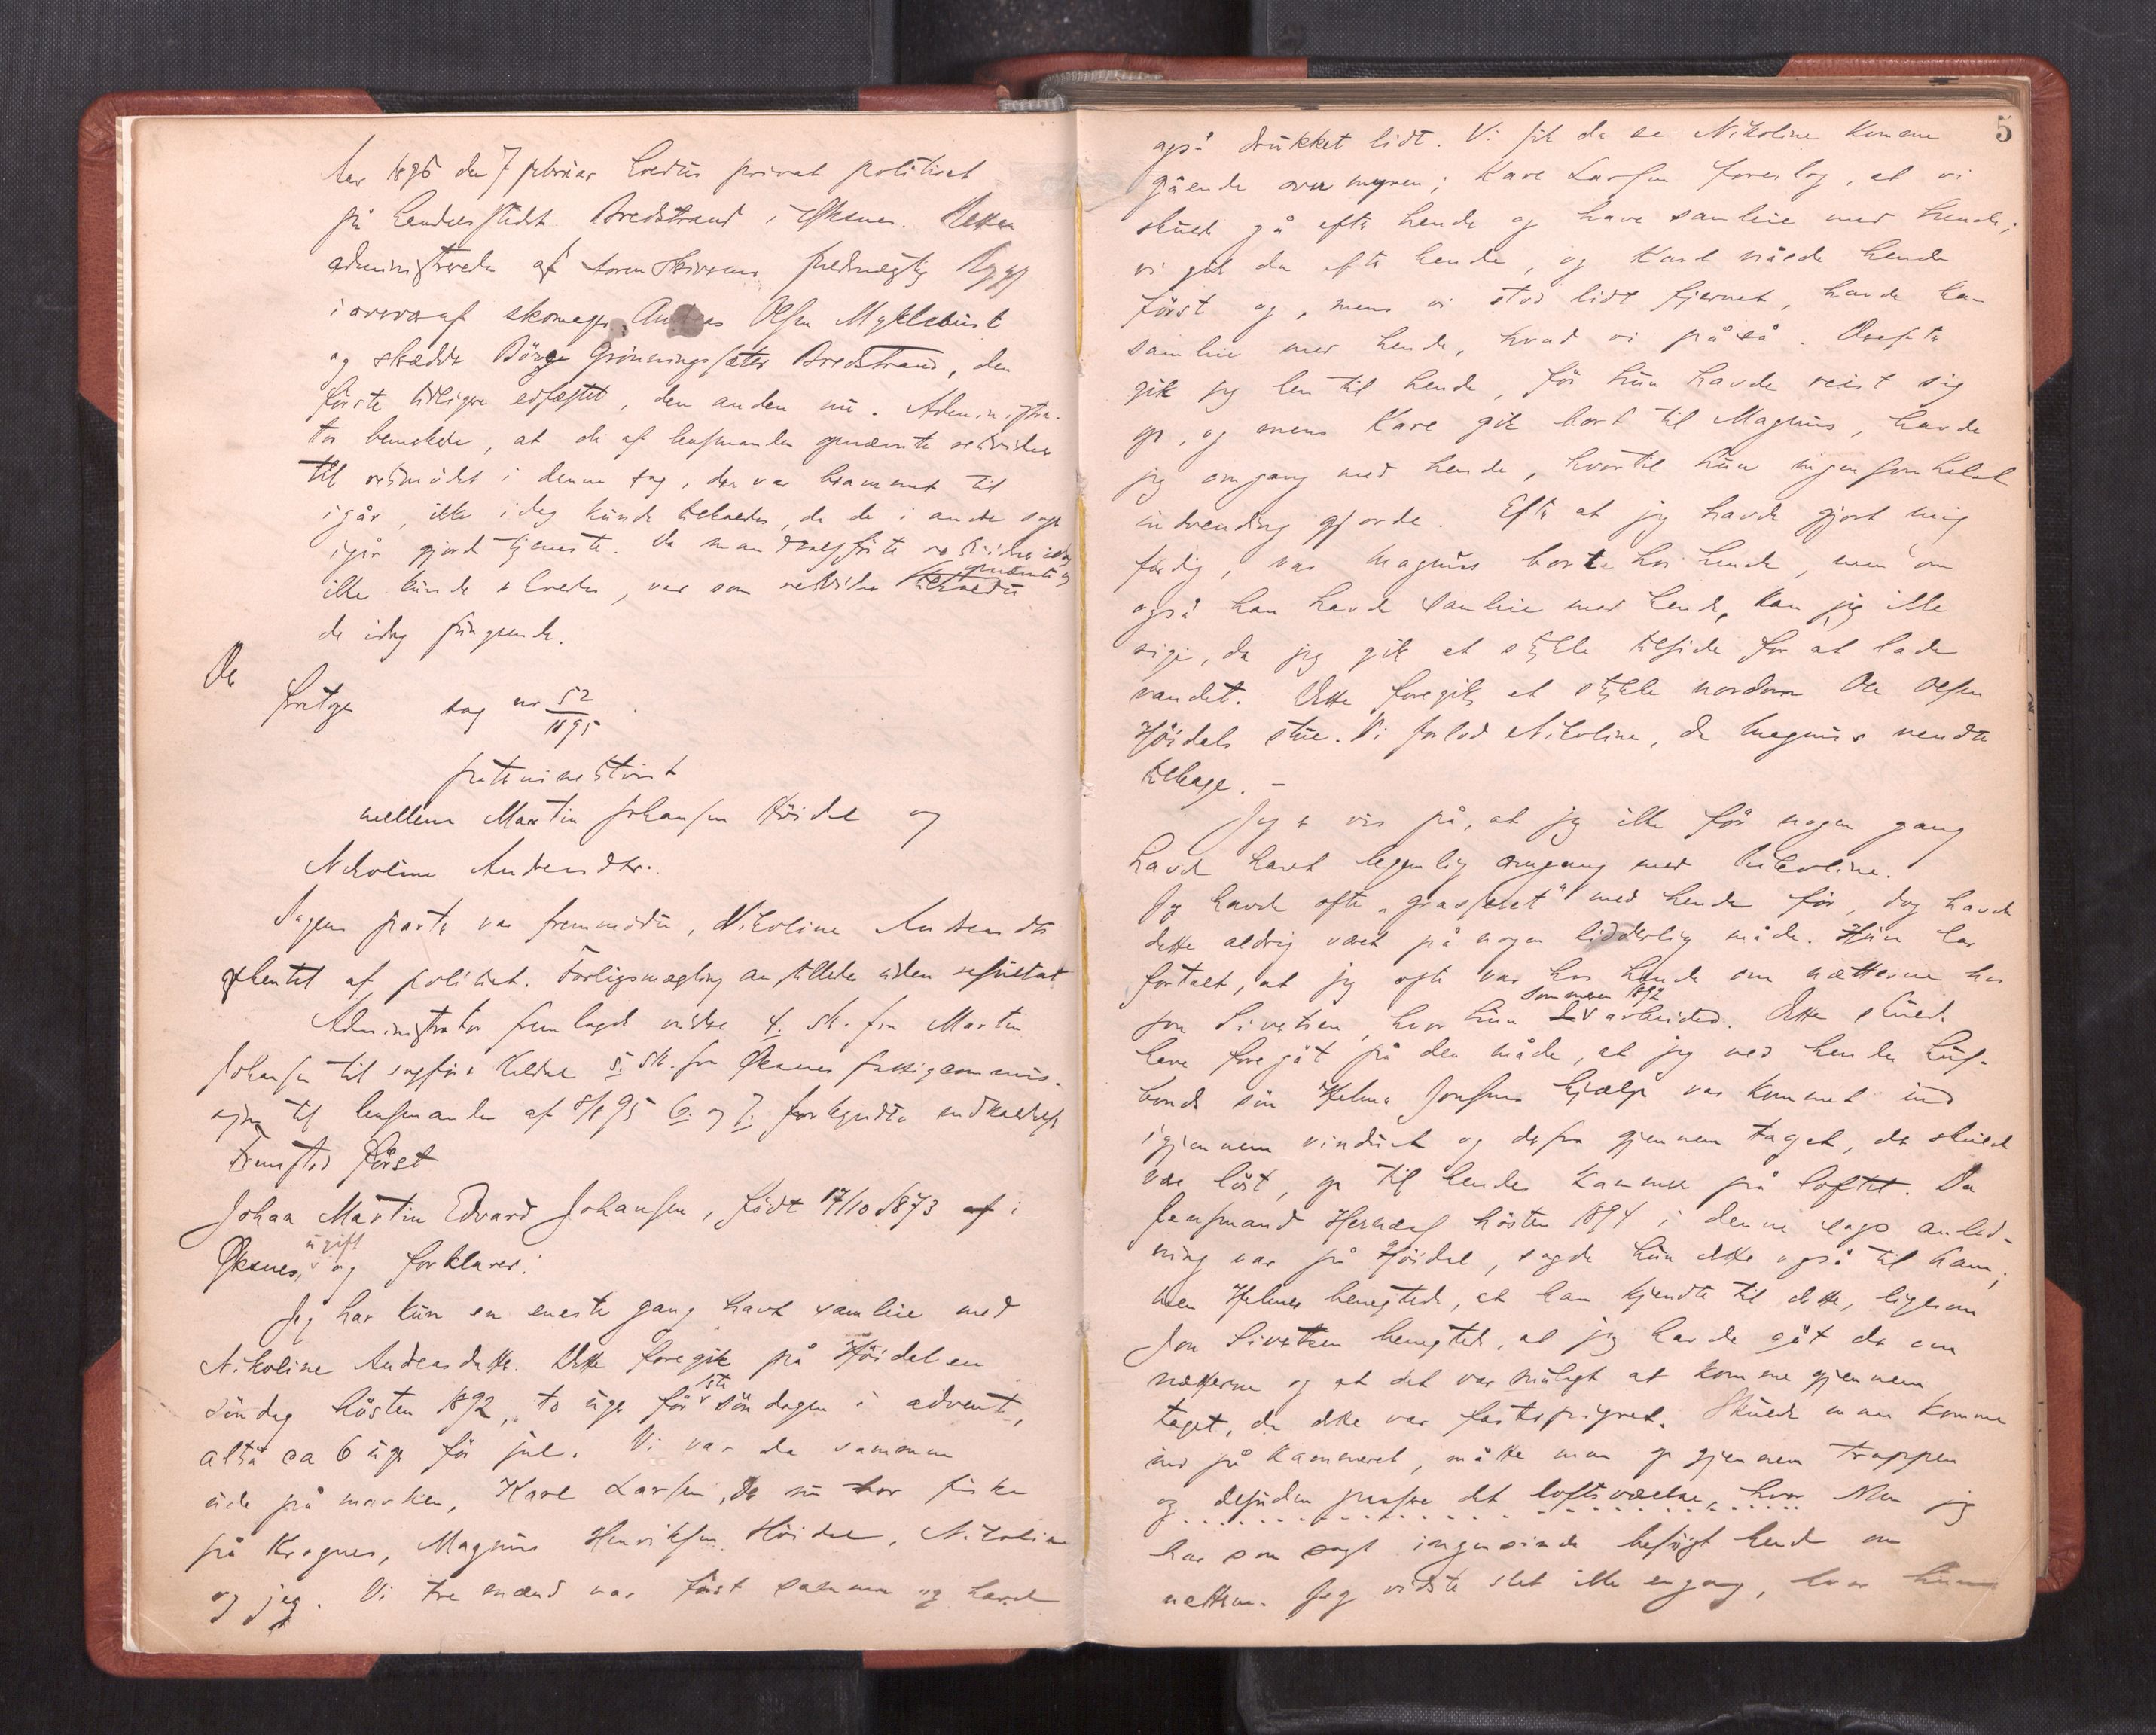 Aar 1896 den 7 februar holdtes privat politiret
på lensmandsstedet Bredstrand i Øksnes. Retten
administreredes af sorenskriverens fuldmægtig Rygg
i overvær af skomager Andreas Olsen Myklebust
og skrædder Börge Grönningsæter Bredstrand, den
förste tidligere edfæstet, den anden nu. Administra-
tor bemerkede, at de af lensmanden opnævnte retsvidner
til retsmödet i denne sag, der var berammet til
igår, ikke idag kunde tilkaldes, da de i andre sager
igår gjorde tjeneste. Da mandtalsförte retsvidner idag
ikke kunde erholdes, var som retsvidner opnævnt og
de idag fungerende.
Der
foretoges sag nr 52/1895
paternitetstvist
mellem Martin Johansen Höidal og
Nikoline Andreasdtr.
Sagens parter var fremmödte, Nikoline Andreasdtr
afhentet af politiet. Forligsmægling anstilledes uden resultat.
Administrator fremlagde videre 4. sk. fra Martin
Johansen til sagförer 5. sk. fra Øksnes fattigcommis-
sjon til lensmanden af 8/8 95 6. og 7. forkyndte indkaldelser
Fremstod först
Johan Martin Edvard Johansen, född 17/10 1873 i
Øksnes, ugift og forklarer:
Jeg har kun en eneste gang havt samleie med
Nikoline Andreasdatter. Dette foregik på Höidal en
söndag hösten 1892, to uger för 1ste söndagen i advent,
altså ca 6 uger för jul. Vi var da sammen
ude på marken, Karl Larsen, der nu bor
på Kragnes, Magnus Henriksen Höidal, Nikoline
og jeg. Vi tre mænd var först sammen og havde
5
også drukket lidt. Vi fik da se Nikoline komme
gående over myren; Karl Larsen foreslog, at vi
skulde gå efter hende og have samleie med hende;
vi gik da efter hende, og Karl nåede hende
först og, mens vi stod lidt fjernet, havde han
samleie med hende, hvad vi påså. Derefter
gik jeg hen til hende, för hun havde reist sig
op, og mens Karl gik bort til Magnus, havde
jeg omgang med hende, hvortil hun ingensomhelst
indvending gjorde. Efter at jeg havde gjort mig
færdig, var Magnus borte hos hende, men om
også han havde samleie med hende, kan jeg ikke
sige, da jeg gik et stykke tilside for at lade
vandet. Dette foregik et stykke nordom Ole Olsen
Höidals stue. Vi forlod Nikoline, da Magnus vendte
tilbage. –
Jeg er vis på, at jeg ikke för nogen gang
havde havt legemlig omgang med Nikoline.
Jeg havde ofte „grasseret“ med hende för, dog havde
dette aldrig været på nogen lidderlig måde. Hun har
fortalt, at jeg ofte var hos hende om nætterne hos
Jon Sivertsen, hvor hun sommeren 1892 arbeided. Dette skulde
have foregåt på den måde, at jeg ved hendes hus-
bonds sön Helmer Jonsens hjælp var kommet ind
igjennem vinduet og derfra gjennem taget, der skulde
være löst, op til hendes kammer på loftet. Da
lensmand Hernæs hösten 1894 i denne sags anled-
ning var på Höidal, sagde hun dette også til ham;
men Helmer benegtede, at han kjendte til dette, ligesom
Jon Sivertsen benegtede, at jeg havde gåt der om
nætterne og at det var muligt at komme gjennem
taget, da dette var fastspigret. Skulde man komme
ind på kammeret, måtte man op gjennem trappen
og desuden passere det loftsværelse, hvor Men jeg
har som sagt ingensinde besögt hende om
nætterne. Jeg vidste slet ikke engang, hvor hun